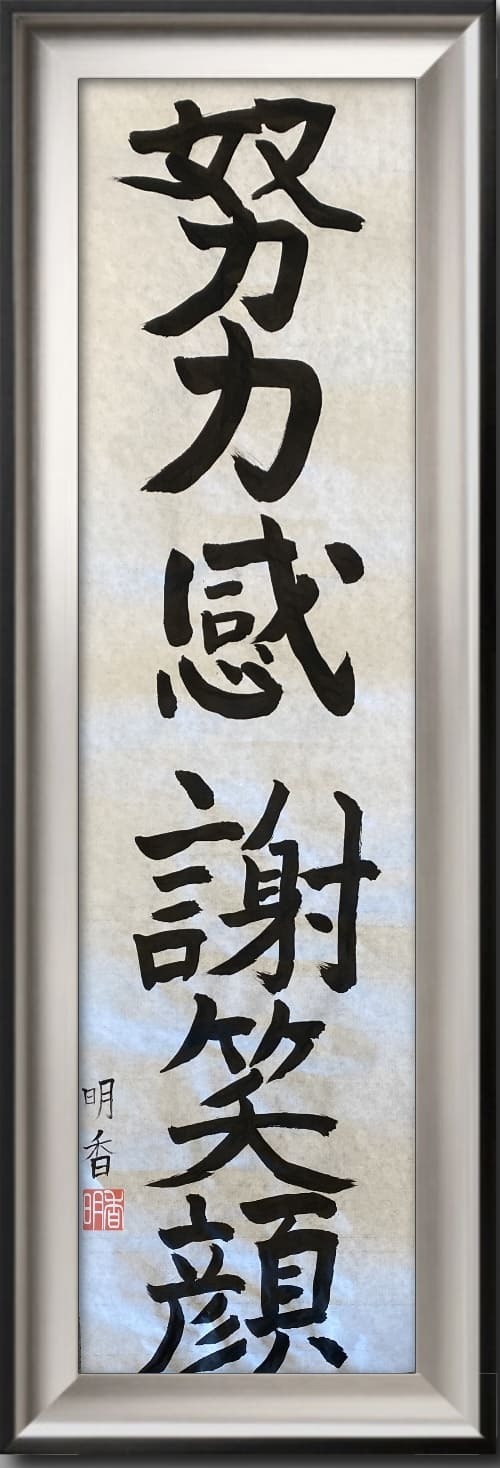 努力感謝笑顔
明香
明香